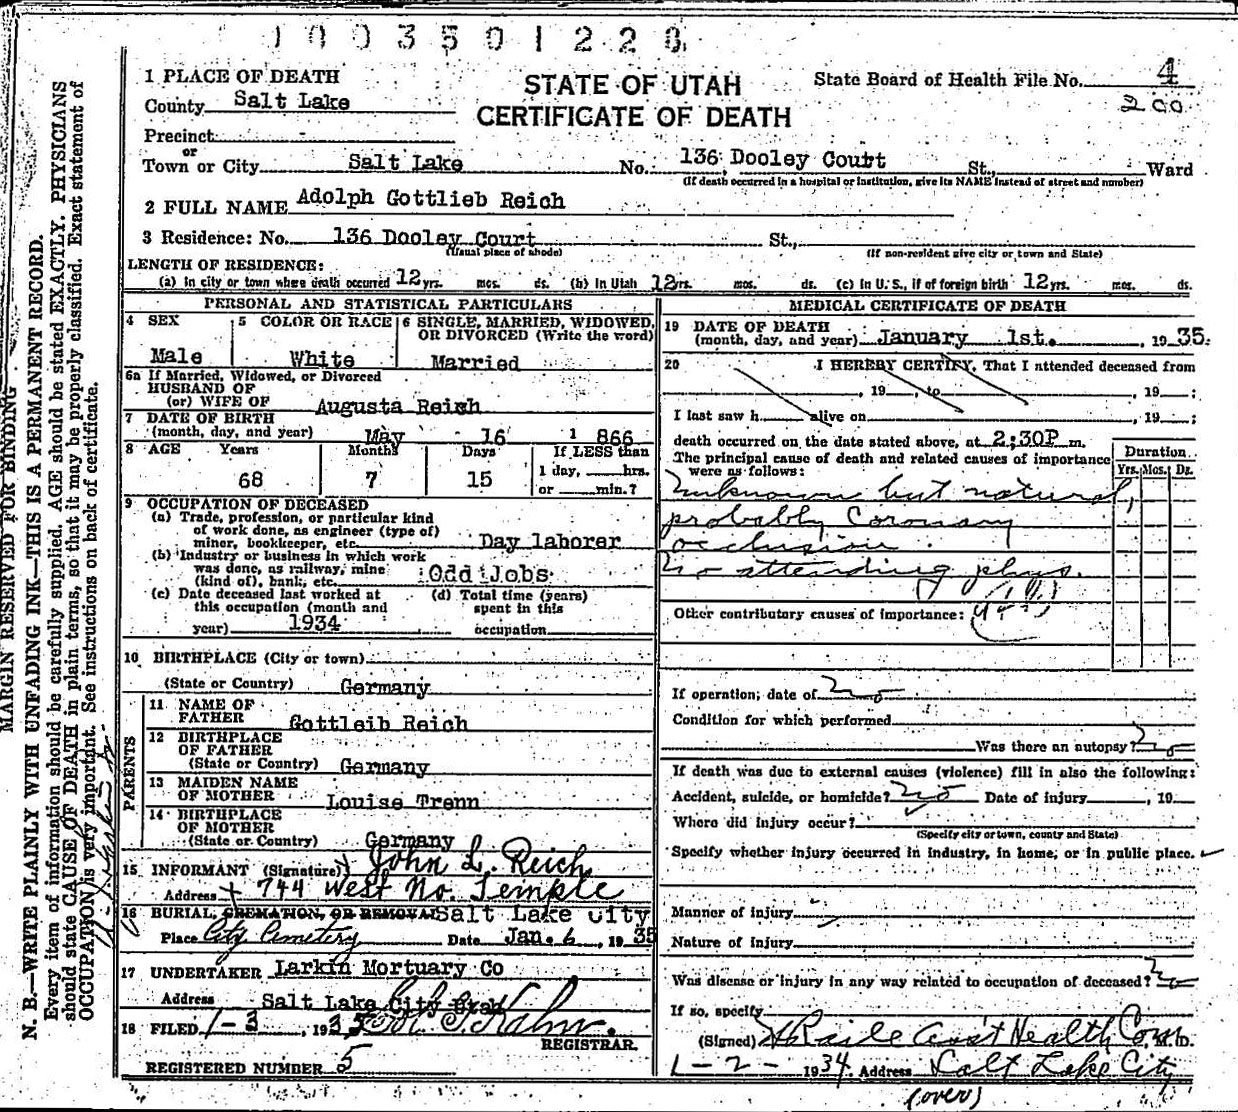 1003501228
1 PLACE OF DEATH
County Salt Lake
Precinct
or
Town or City Salt Lake No. 136 Dooley Court St., Ward
(If death occurred in a hospital or institution, give its NAME instead of street and number)
STATE OF UTAH
CERTIFICATE OF DEATH
State Board of Health File No. 4
200
2 FULL NAME Adolph Gottlieb Reich
3 Residence: No. 136 Dooley Court St.,
(Usual place of abode) (If non-resident give city or town and State)
LENGTH OF RESIDENCE:
(a) In city or town where death occurred 12 yrs. mos. ds. (b) In Utah 12 yrs. mos. ds. (c) In U.S., if of foreign birth 12 yrs. mos. ds.
PERSONAL AND STATISTICAL PARTICULARS
4 SEX 5 COLOR OR RACE 6 SINGLE, MARRIED, WIDOWED,
OR DIVORCED (Write the word)
Male White Married
6a If Married, Widowed, or Divorced
HUSBAND OF
(or) WIFE OF Augusta Reich
7 DATE OF BIRTH
(month, day, and year) May 16 1866
8 AGE Years Months Days If LESS than
1 day, hrs.
68 7 15 or min.?
9 OCCUPATION OF DECEASED
(a) Trade, profession, or particular kind
of work done, as engineer (type of)
minor, bookkeeper, etc. Day laborer
(b) Industry or business in which work
was done, as railway, mine
(kind of), bank, etc. Odd Jobs
(c) Date deceased last worked at (d) Total time (years)
this occupation (month and spent in this
year) 1934 occupation
10 BIRTHPLACE (City or town)
(State or Country) Germany
PARENTS
11 NAME OF
FATHER Gottleib Reich
12 BIRTHPLACE
OF FATHER
(State or Country) Germany
13 MAIDEN NAME
OF MOTHER Louise Trenn
14 BIRTHPLACE
OF MOTHER
(State or Country) Germany
15 INFORMANT (Signature) John L. Reich
Address 744 West No. Temple
16 BURIAL, CREMATION, OR REMOVAL Salt Lake City
Place City Cemetery Date Jan. 6, 1935
17 UNDERTAKER Larkin Mortuary Co
Address Salt Lake City Utah
18 FILED 1-3, 1935
REGISTRAR.
REGISTERED NUMBER 5
MEDICAL CERTIFICATE OF DEATH
19 DATE OF DEATH
(month, day, and year) January 1st., 1935.
20 I HEREBY CERTIFY, That I attended deceased from
, 19 , to , 19 ;
I last saw h alive on , 19 ;
death occurred on the date stated above, at 2:30P m.
The principal cause of death and related causes of importance
were as follows:
Duration
Yrs. Mos. Ds.
Unknown but natural,
probably Coronary
occlusion.
No attending phys.
Other contributory causes of importance:
If operation, date of No
Condition for which performed
Was there an autopsy? No
If death was due to external causes (violence) fill in also the following:
Accident, suicide, or homicide? No Date of injury , 19
Where did injury occur?
(Specify city or town, county and State)
Specify whether injury occurred in industry, in home, or in public place.
Manner of injury
Nature of injury
Was disease or injury in any way related to occupation of deceased? No
If so, specify
(Signed) Health Com M.D.
1-2-1934. Address Salt Lake City
(over)
MARGIN RESERVED FOR BINDING
N. B.—WRITE PLAINLY WITH UNFADING INK—THIS IS A PERMANENT RECORD.
Every item of information should be carefully supplied. AGE should be stated EXACTLY. PHYSICIANS
should state CAUSE OF DEATH in plain terms, so that it may be properly classified. Exact statement of
OCCUPATION is very important. See instructions on back of certificate.